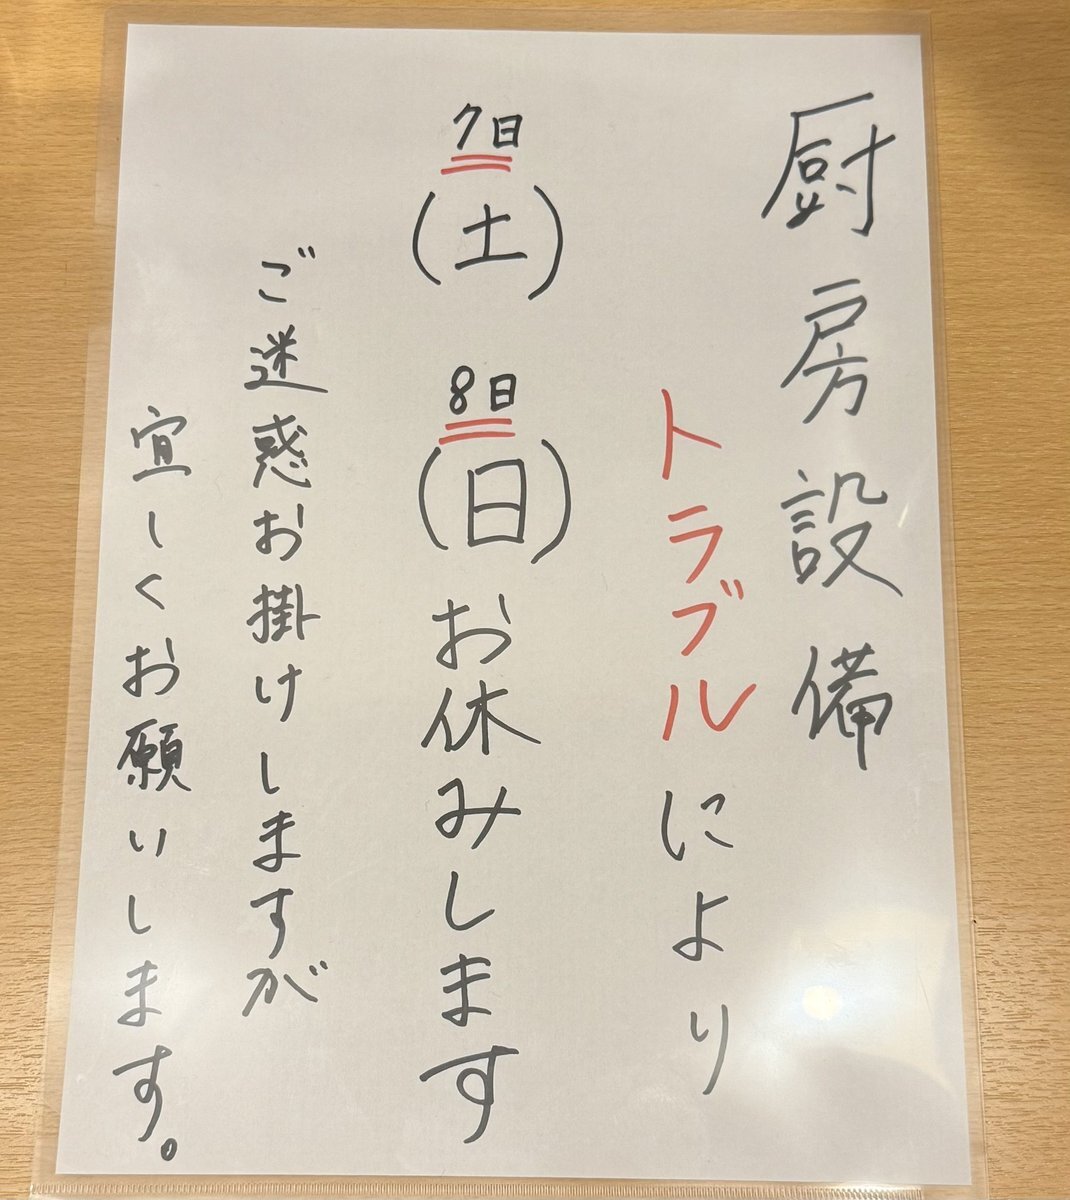 厨房設備
トラブルにより
7日(土) 8日(日)お休みします
ご迷惑お掛けしますが
宜しくお願いします。